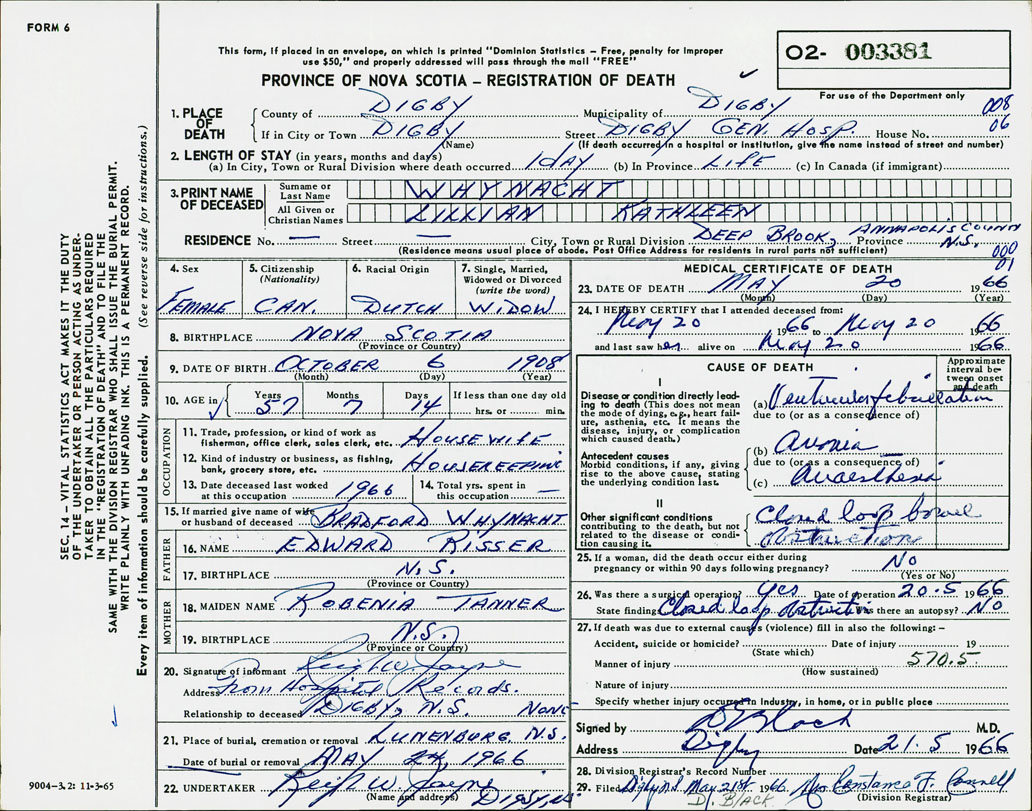 FORM 6
This form, if placed in an envelope, on which is printed "Dominion Statistics – Free, penalty for improper
use $50," and properly addressed will pass through the mail "FREE"
PROVINCE OF NOVA SCOTIA – REGISTRATION OF DEATH
02- 003381
For use of the Department only
008
06
1. PLACE OF DEATH
County of DIGBY Municipality of DIGBY
If in City or Town DIGBY Street DIGBY GEN. HOSP. House No.
(Name) (If death occurred in a hospital or institution, give the name instead of street and number)
2. LENGTH OF STAY (in years, months and days)
(a) In City, Town or Rural Division where death occurred 1 DAY (b) In Province LIFE (c) In Canada (if immigrant)
3. PRINT NAME OF DECEASED
Surname or Last Name WHYNACHT
All Given or Christian Names LILLIAN KATHLEEN
RESIDENCE No. — Street — City, Town or Rural Division DEEP BROOK, ANNAPOLIS COUNTY Province N.S.
(Residence means usual place of abode. Post Office Address for residents in rural parts not sufficient)
000
01
4. Sex FEMALE
5. Citizenship (Nationality) CAN.
6. Racial Origin DUTCH
7. Single, Married, Widowed or Divorced (write the word) WIDOW
8. BIRTHPLACE NOVA SCOTIA
(Province or Country)
9. DATE OF BIRTH OCTOBER 6 1908
(Month) (Day) (Year)
10. AGE in Years 57 Months 7 Days 14 If less than one day old hrs. or min.
OCCUPATION
11. Trade, profession, or kind of work as fisherman, office clerk, sales clerk, etc. HOUSEWIFE
12. Kind of industry or business, as fishing, bank, grocery store, etc. HOUSEKEEPING
13. Date deceased last worked at this occupation 1966
14. Total yrs. spent in this occupation —
15. If married give name of wife or husband of deceased BRADFORD WHYNACHT
FATHER
16. NAME EDWARD RISSER
17. BIRTHPLACE N.S.
(Province or Country)
MOTHER
18. MAIDEN NAME ROBENIA TANNER
19. BIRTHPLACE N.S.
(Province or Country)
20. Signature of informant
Address From Hospital Records.
Relationship to deceased DIGBY, N.S. NONE
21. Place of burial, cremation or removal LUNENBURG N.S.
Date of burial or removal MAY 24, 1966
22. UNDERTAKER
(Name and address) DIGBY
MEDICAL CERTIFICATE OF DEATH
23. DATE OF DEATH MAY 20 1966
(Month) (Day) (Year)
24. I HEREBY CERTIFY that I attended deceased from:
May 20 1966 to May 20 1966
and last saw her alive on May 20 1966
CAUSE OF DEATH
Approximate interval between onset and death
I
Disease or condition directly leading to death (This does not mean the mode of dying, e.g., heart failure, asthenia, etc. It means the disease, injury, or complication which caused death.)
(a) Ventricular fibrillation
due to (or as a consequence of)
Antecedent causes
Morbid conditions, if any, giving rise to the above cause, stating the underlying condition last.
(b) Anoxia
due to (or as a consequence of)
(c) Anaesthesia
II
Other significant conditions contributing to the death, but not related to the disease or condition causing it.
Closed loop bowel
obstruction
25. If a woman, did the death occur either during pregnancy or within 90 days following pregnancy? No
(Yes or No)
26. Was there a surgical operation? Yes Date of operation 20.5 1966
State findings Closed loop obstruction Was there an autopsy? No
27. If death was due to external causes (violence) fill in also the following: –
Accident, suicide or homicide? Date of injury 19
(State which)
Manner of injury 570.5
(How sustained)
Nature of injury
Specify whether injury occurred in industry, in home, or in public place
Signed by M.D.
Address Digby Date 21.5 1966
28. Division Registrar's Record Number
29. Filed May 21st 1966
D. BLACK (Division Registrar)
SEC. 14 – VITAL STATISTICS ACT MAKES IT THE DUTY
OF THE UNDERTAKER OR PERSON ACTING AS UNDER-
TAKER TO OBTAIN ALL THE PARTICULARS REQUIRED
IN THE "REGISTRATION OF DEATH" AND TO FILE THE
SAME WITH THE DIVISION REGISTRAR WHO SHALL ISSUE THE BURIAL PERMIT.
WRITE PLAINLY WITH UNFADING INK. THIS IS A PERMANENT RECORD.
Every item of information should be carefully supplied. (See reverse side for instructions.)
9004–3.2: 11-3-65